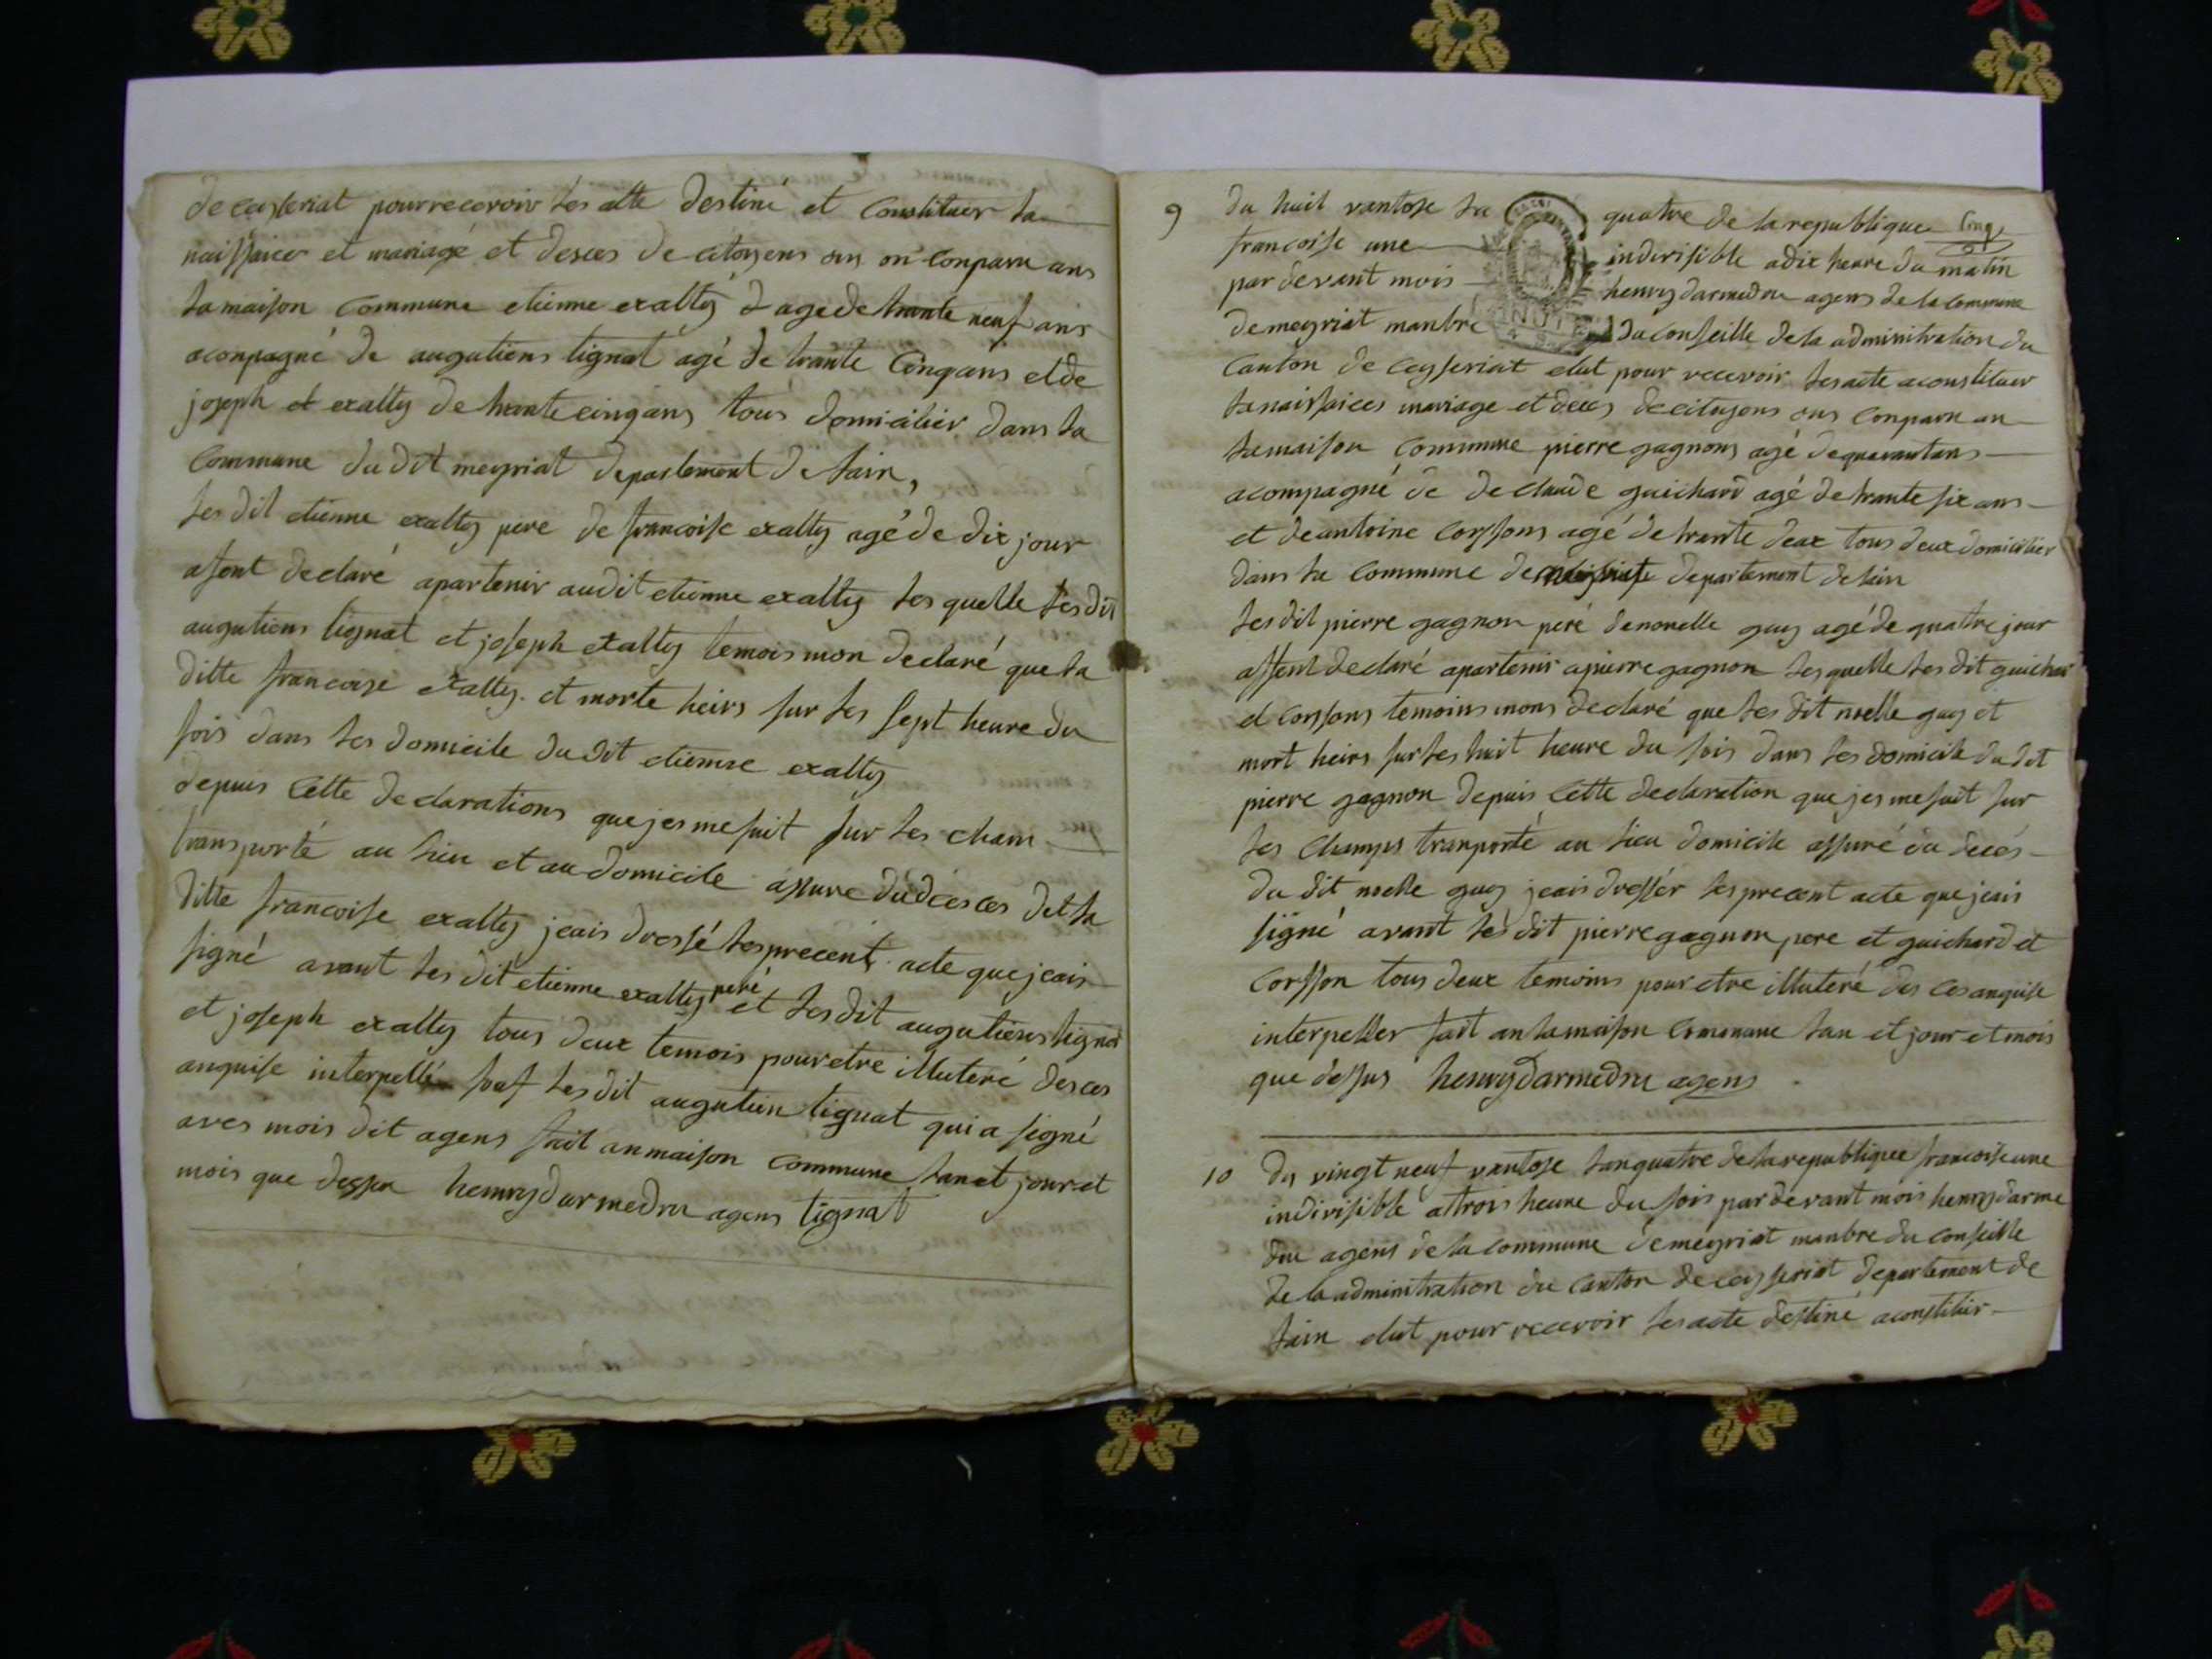 de ceyseriat pour recevoir les atte destiné et constituer la
naissaice et mariage et desces de citoyens ons on conparu ans
la maison commune etienne exalty d age de trante neuf ans
aconpagné de augutiens lignat agé de trante cinq ans et de
joseph et exalty de trante cinq ans tous domicilier dans la
commune du dit meyriat departement de lain,
les dit etienne exalty pere de francoise exalty agé de dix jour
asont declaré apartenir au dit etienne exalty les quelle les dit
augutiens lignat et joseph exalty temois mon declaré que la
ditte francoise exalty et morte heirs sur les sept heure du
sois dans les domicile du dit etienne exalty
depuis cette declarations que jes me suit sur les cham
transporté au lieu et au domicile assure du deces ces det la
ditte francoise exalty jeais dressé les precent acte que jeais
signé avant les dit etienne exalty peré et les dit augutiens lignat
et joseph exalty tous deux temois pour etre illuteré des ces
anquise interpellé sauf les dit augutien lignat qui a signé
aves mois dit agens fait an maison commune lan et jour et
mois que dessu henry darmedru agens lignat
9 du huit vantose la quatre de la republique cinq
francoise une indivisible a dix heure du matin
par devant mois henry darmedru agens de la commune
de meyriat manbre du conseille de la adminitration du
canton de ceyseriat elut pour recevoir les acte a constituer
la naissaices mariage et deces de citoyens ons conparu an
la maison commune pierre gagnons agé de quarantans
acompagné de de claude guichard agé de trante six ans
et de antoine corssons agé de trante deux tous deux domicilier
dans la commune de departement de lain
les dit pierre gagnon peré de novelle guy agé de quatre jour
assont declaré apartenir a pierre gagnon les quelle les dit guichar
et corssons temoins mons declaré que les dit noelle guy et
mort heirs sur les huit heure du sois dans les domicile du dit
pierre gagnon depuis cette declaration que jes me suit sur
les champs tranporté au lieu domicile assuré du decés
du dit noelle guy jeais dressér les precent acte que jeais
signé avant les dit pierre gagnon pere et guichard et
corsson tous deux temoins pour etre illuteré des ces anquise
interpeller fait an la maison commune lan et jour et mois
que dessus henry darmedru agens
10 du vingt neuf vantose lan quatre de la republique francoise une
indivisible a trois heure du sois par devant mois henry darme
dru agens de la commune de meyriat manbre du conseille
de la adminitration du canton de ceysseriat departement de
lain elut pour recevoir les acte destiné a constituir